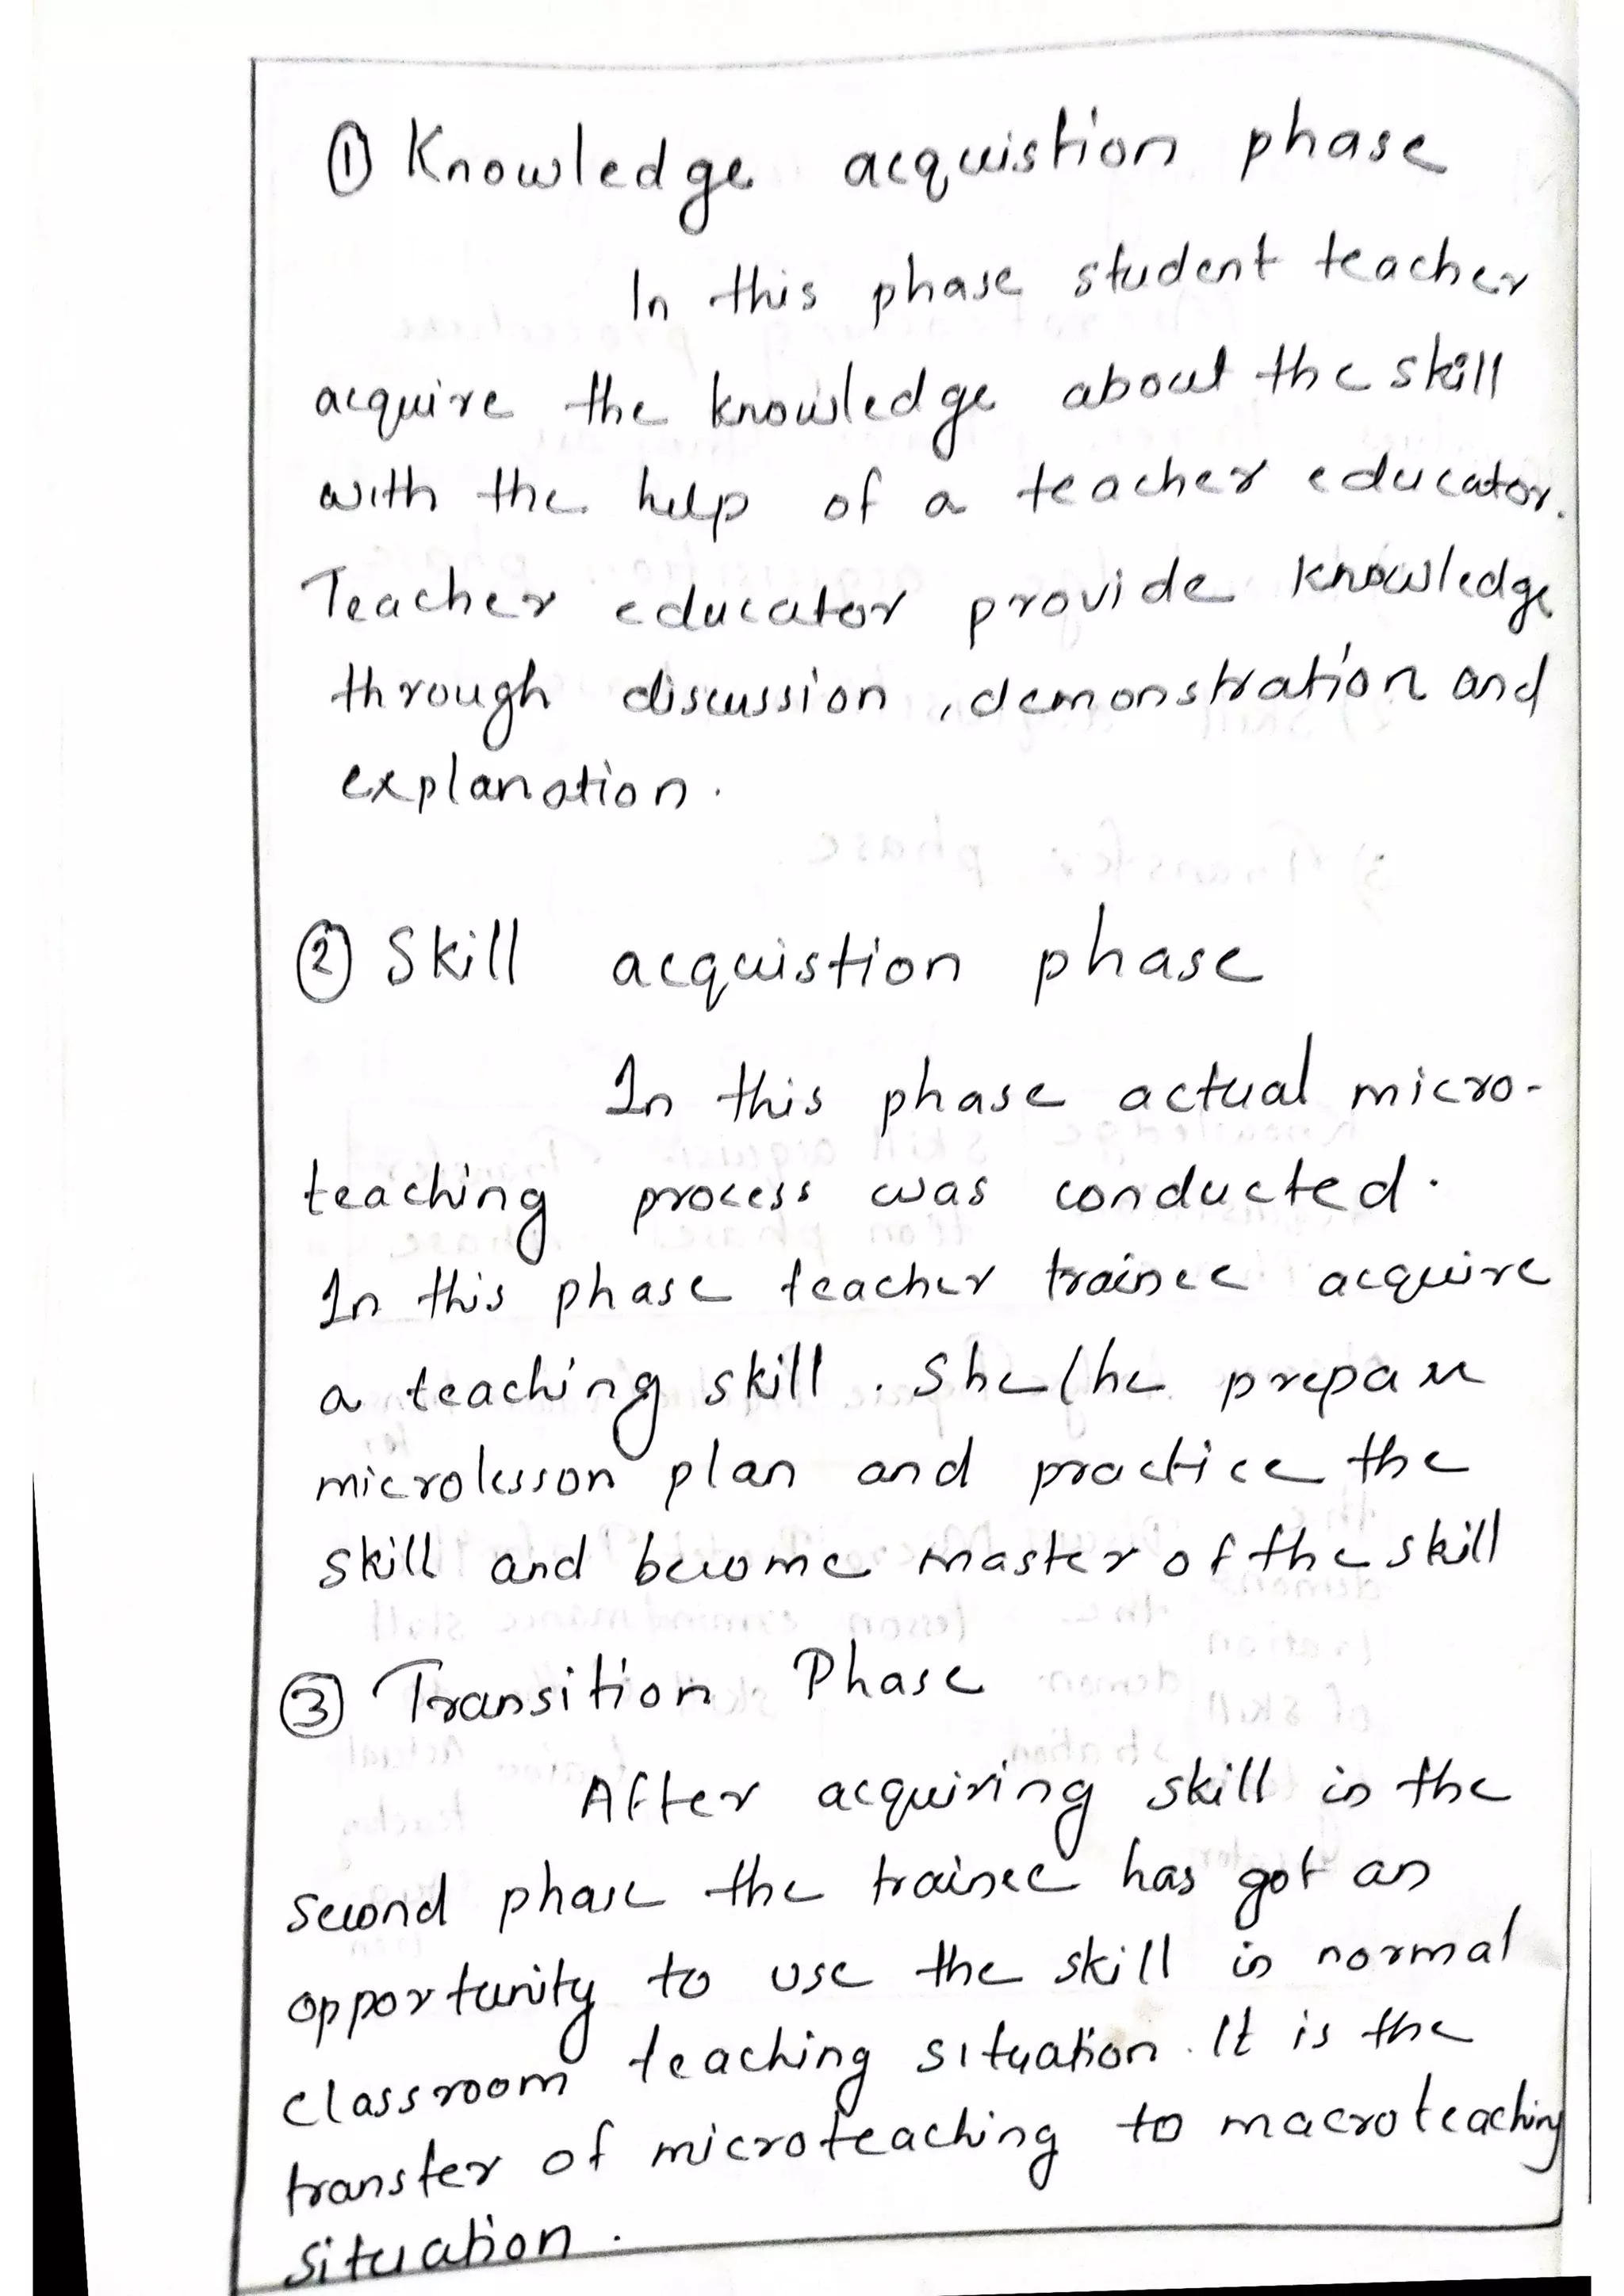 ① Knowledge acquistion phase
In this phase student teacher
acquire the knowledge about the skill
with the help of a teacher educator.
Teacher educator provide knowledge
through discussion , demonstration and
explanation .
② Skill acquistion phase
In this phase actual micro-
teaching process was conducted .
In this phase teacher trainee acquire
a teaching skill . She/he prepare
microlesson plan and practice the
skill and become master of the skill
③ Transition Phase
After acquiring skill in the
second phase the trainee has got an
opportunity to use the skill in normal
classroom teaching situation . It is the
transfer of microteaching to macroteaching
situation .